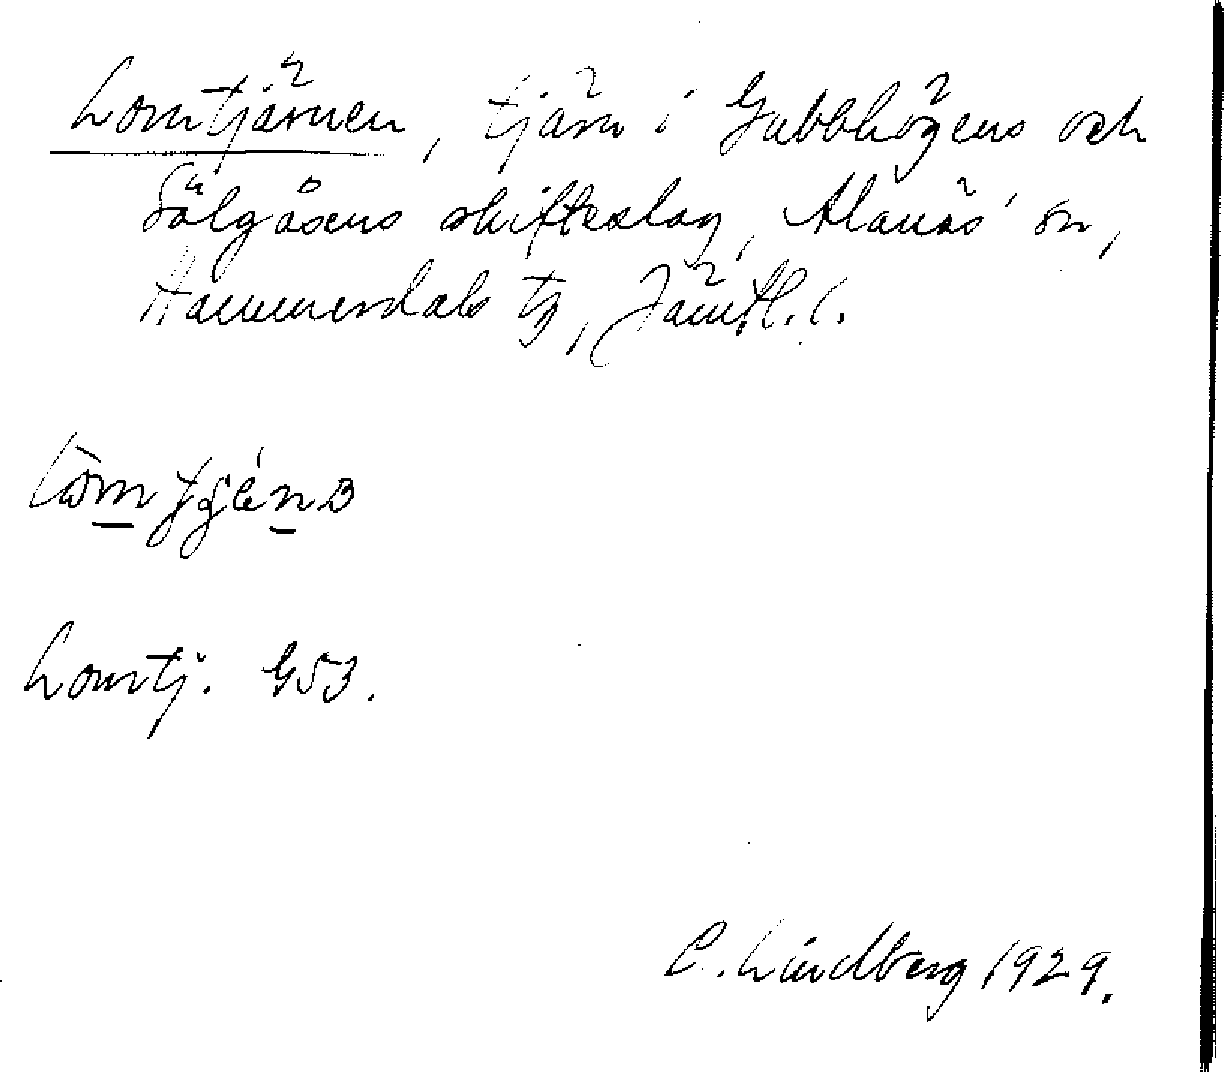 Lomtjärnen, tjärn i Gubbhögens och
Sälgåsens skifteslag, Alanäs' sn,
Hammerdals tg, Jämtl. l.
Lomtj. G53.
C. Lindberg 1929.